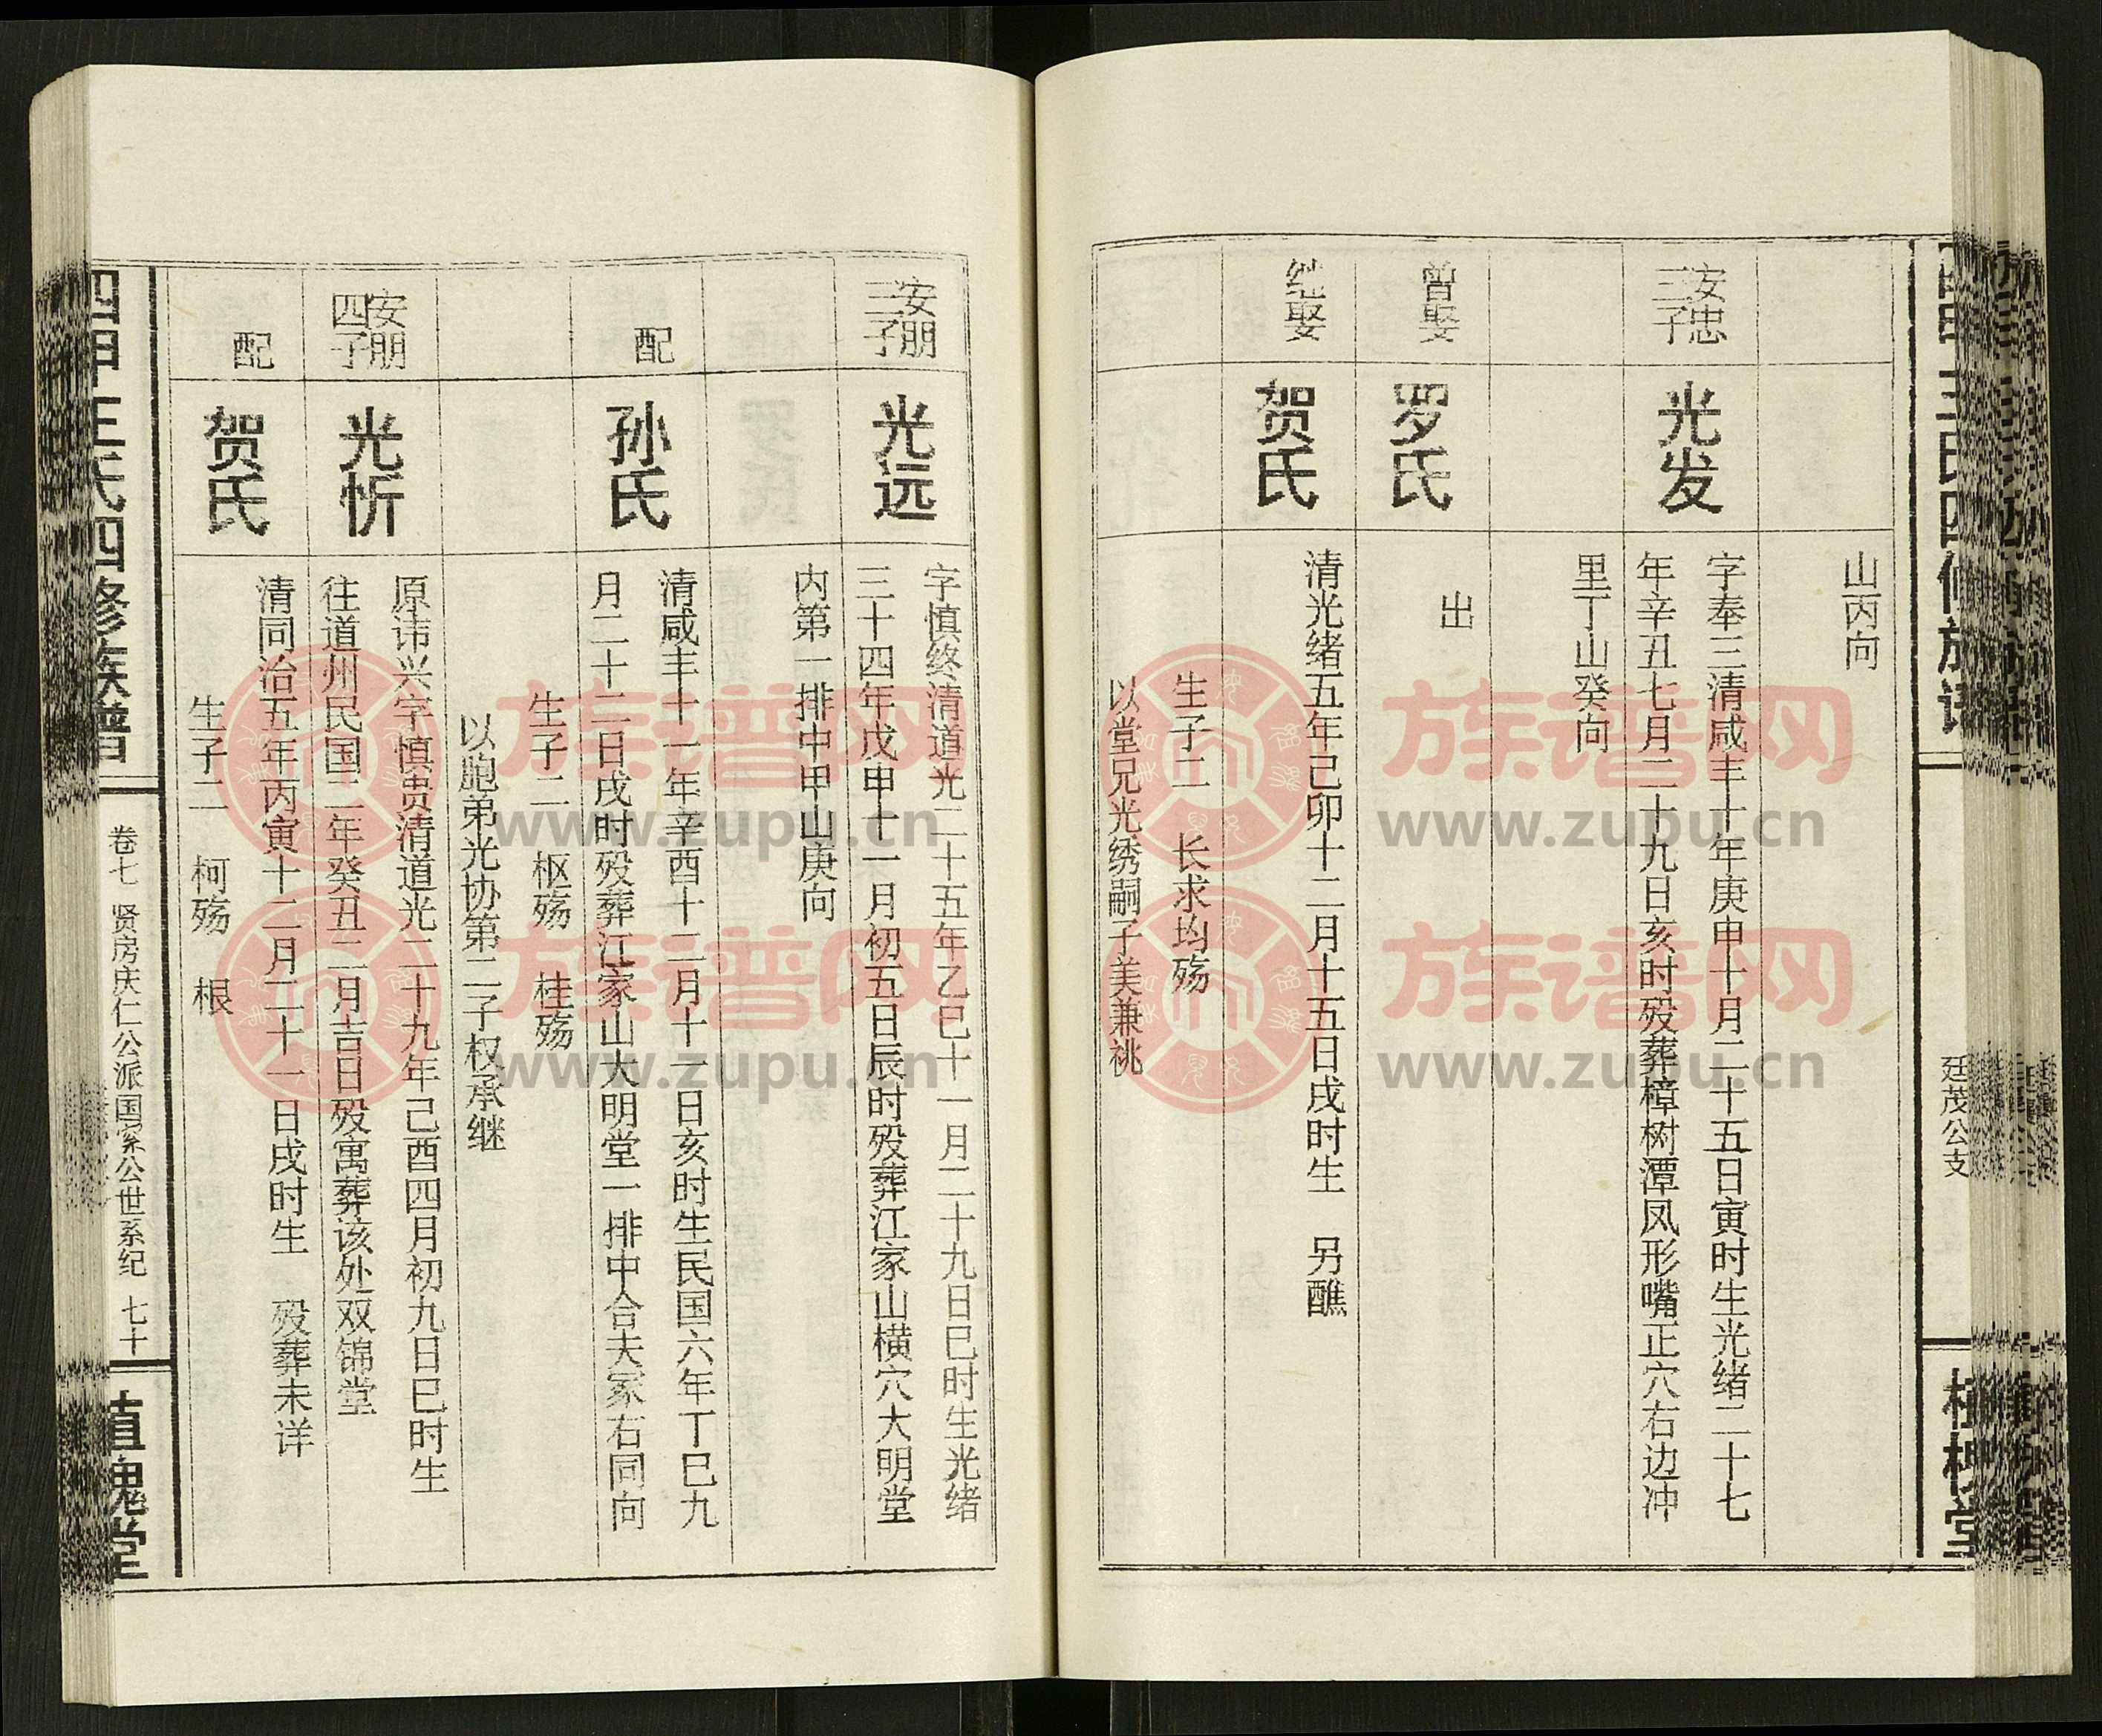 山丙向
安忠
三子
光发
字奉三清咸丰十年庚申十月二十五日寅时生光绪二十七
年辛丑七月二十九日亥时殁葬樟树潭凤形嘴正穴右边冲
里丁山癸向
曾娶
罗氏
出
继娶
贺氏
清光绪五年己卯十二月十五日戌时生 另醮
生子二 长求均殇
以堂兄光绣嗣子美兼祧
廷茂公支
安朋
三子
光远
字慎终清道光二十五年乙巳十一月二十九日巳时生光绪
三十四年戊申十一月初五日辰时殁葬江家山横穴大明堂
内第一排中甲山庚向
配
孙氏
清咸丰十一年辛酉十二月十一日亥时生民国六年丁巳九
月二十二日戌时殁葬江家山大明堂一排中合夫冢右同向
生子二 枢殇 桂殇
以胞弟光协第二子权承继
安朋
四子
光忻
原讳兴字慎贵清道光二十九年己酉四月初九日巳时生
往道州民国二年癸丑二月吉日殁寓葬该处双锦堂
配
贺氏
清同治五年丙寅十二月二十一日戌时生 殁葬未详
生子二 柯殇 根
四甲王氏四修族谱
卷七 贤房庆仁公派国系公世系纪 七十
植槐堂
族谱网
www.zupu.cn
族谱网
www.zupu.cn
族谱网
www.zupu.cn
族谱网
www.zupu.cn